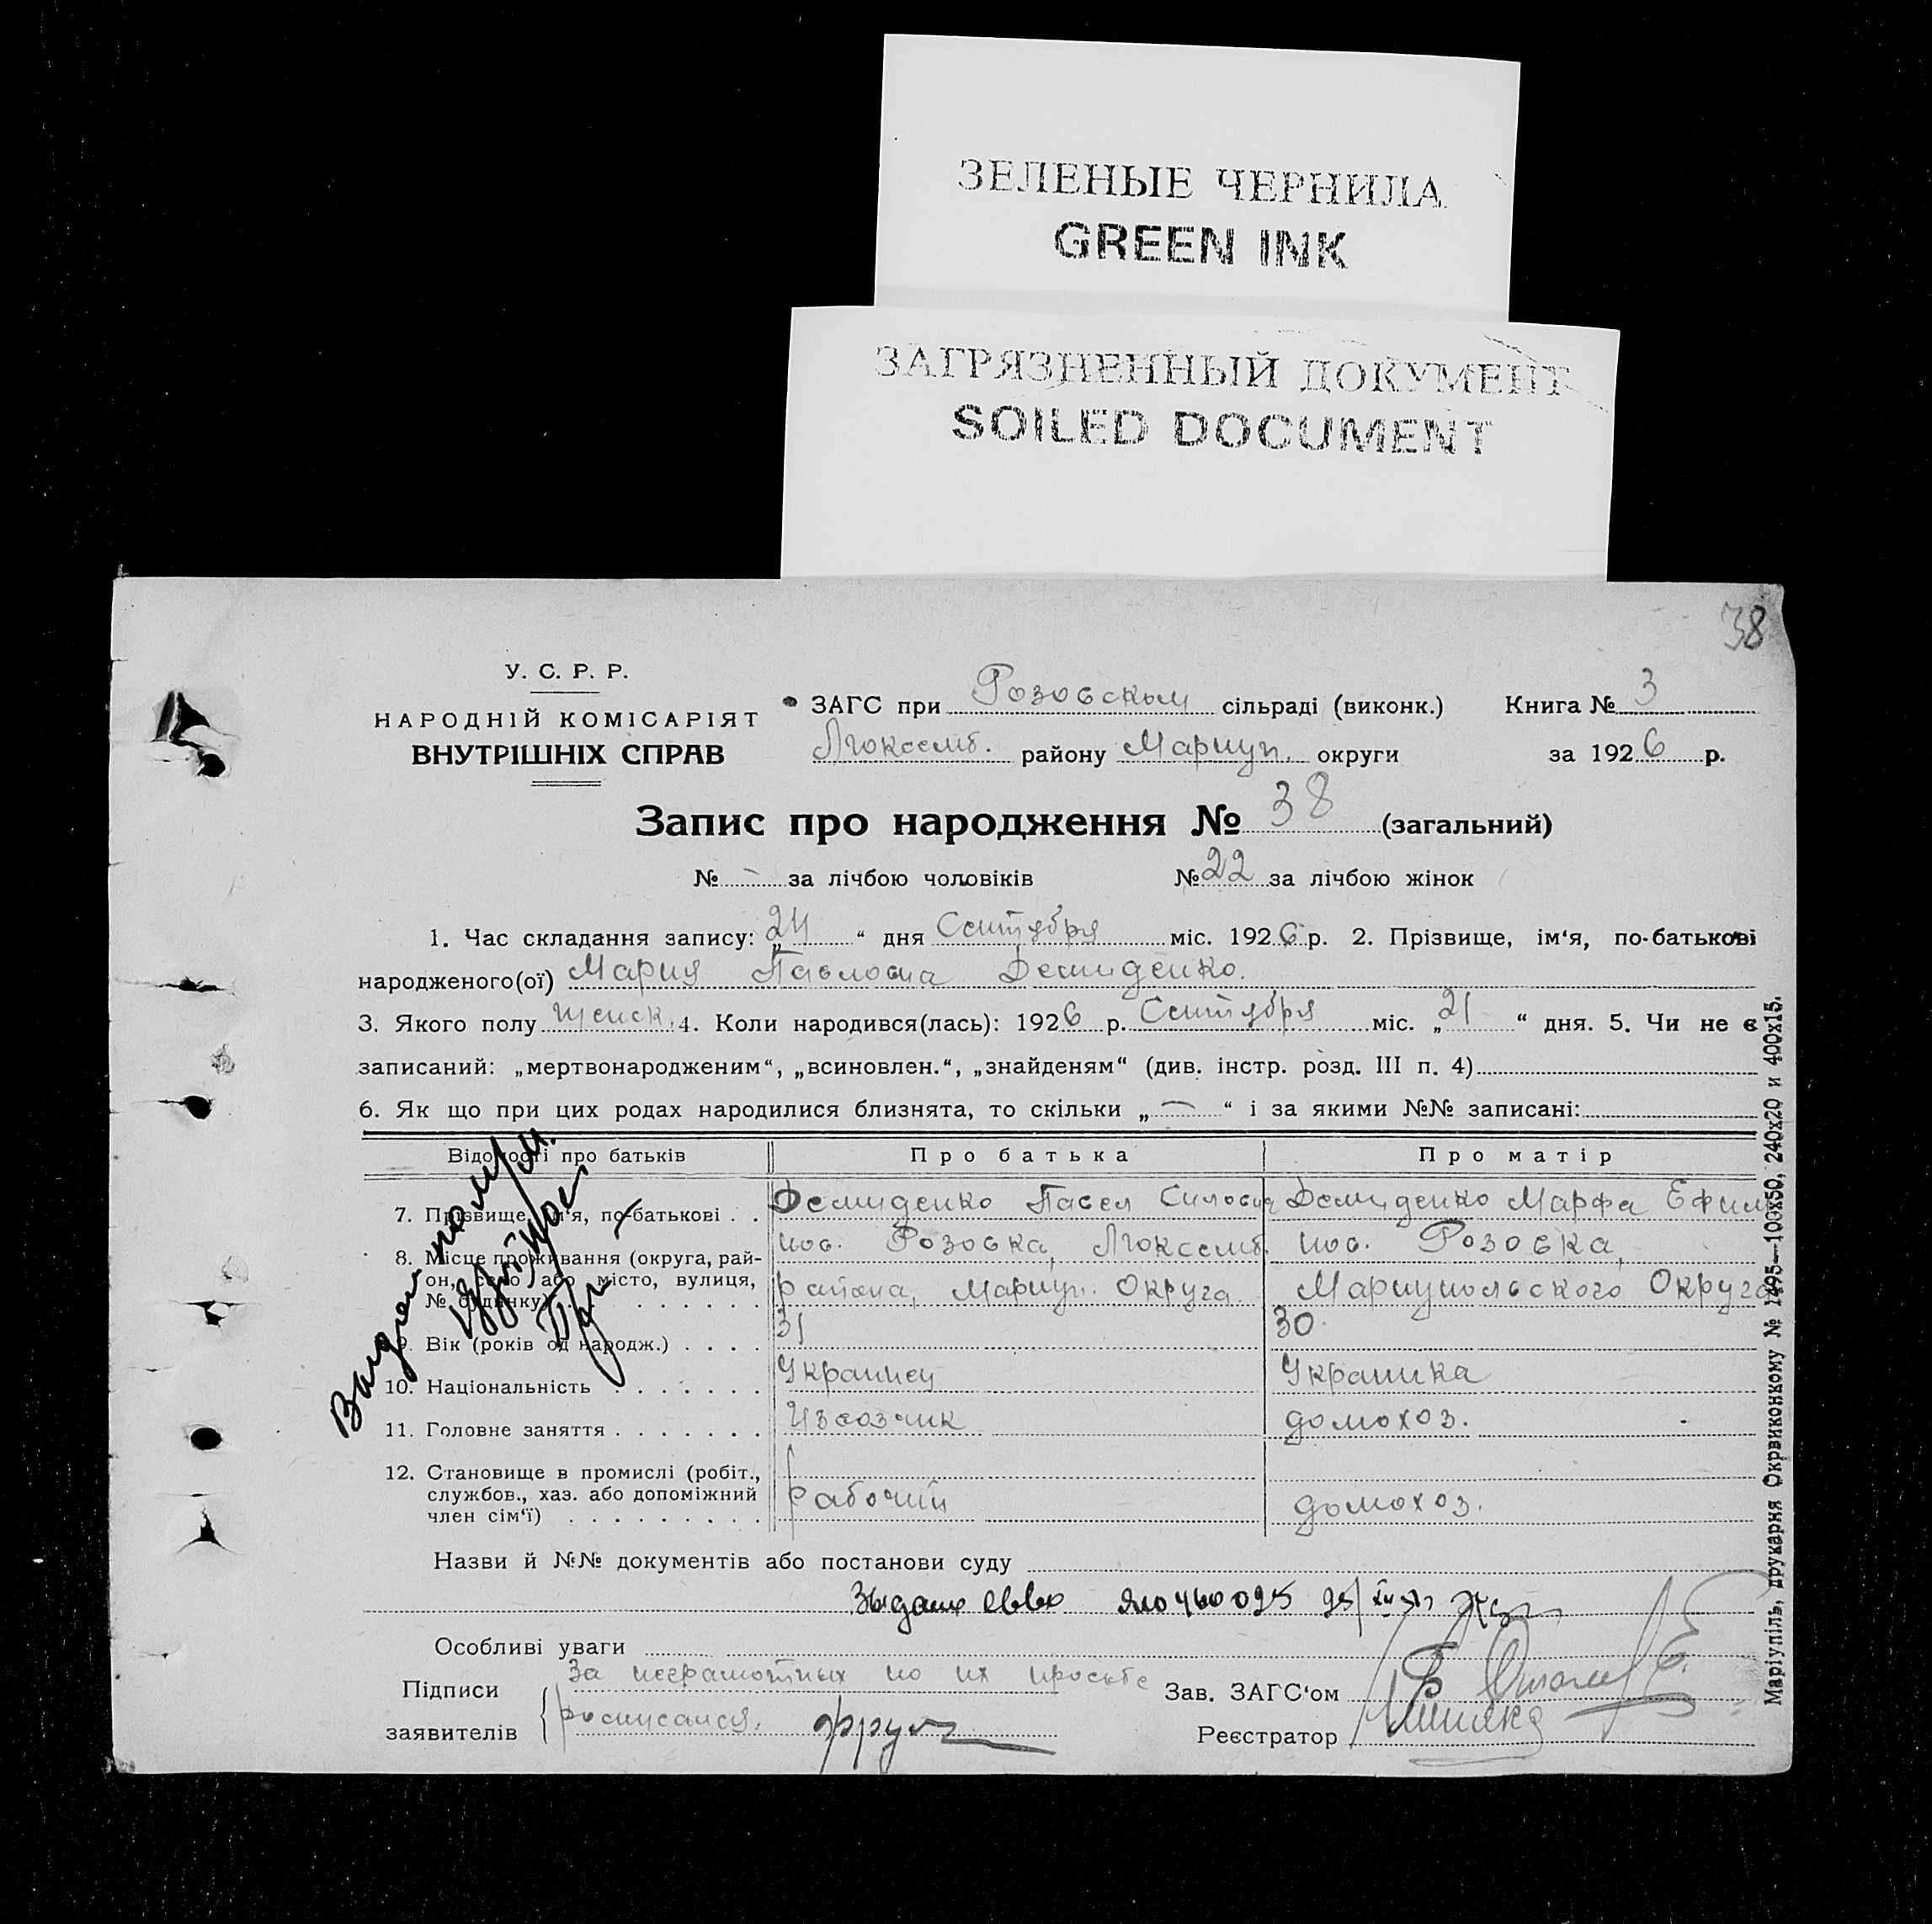 ЗЕЛЕНЫЕ ЧЕРНИЛА
GREEN INK
ЗАГРЯЗНЕННЫЙ ДОКУМЕНТ
SOILED DOCUMENT
38
У. С. Р. Р.
НАРОДНІЙ КОМІСАРІЯТ
ВНУТРІШНІХ СПРАВ
ЗАГС при Розовском сільраді (виконк.) Книга № 3
Люксемб. району Мариуп. округи за 1926 р.
Запис про народження № 38 (загальний)
№ - за лічбою чоловіків № 22 за лічбою жінок
1. Час складання запису: „24“ дня Сентября міс. 1926 р. 2. Прізвище, ім‘я, по-батькові
народженого(ої) Мария Павловна Демиденко.
3. Якого полу женск. 4. Коли народився(лась): 1926 р. Сентября міс. „21“ дня. 5. Чи не є
записаний: „мертвонародженим“, „всиновлен.“, „знайденям“ (див. інстр. розд. III п. 4)
6. Як що при цих родах народилися близнята, то скільки „—“ і за якими №№ записані:
Відомості про батьків Про батька Про матір
7. Прізвище, ім‘я, по-батькові . . Демиденко Павел Силович Демиденко Марфа Ефим
8. Місце проживання (округа, рай- пос. Розовка, Люксемб. пос. Розовка,
он, село або місто, вулиця, района, Мариуп. Округа. Мариупольского Округа
№ будинку)
9. Вік (років од народж.) . . . . 31 30
10. Національність . . . . . . Украинец Украинка
11. Головне заняття . . . . . . . Извозчик домохоз.
12. Становище в промислі (робіт.,
службов., хаз. або допоміжний Рабочий домохоз.
член сім‘ї) . . . . . . . . .
Выдан
Назви й №№ документів або постанови суду
460025 25/
Особливі уваги
Підписи За неграмотных по их просьбе Зав. ЗАГС‘ом
заявителів росписался. Реєстратор
Маріупіль, друкарня Окрвиконкому № 1495—100х50, 240х20 и 400х15.